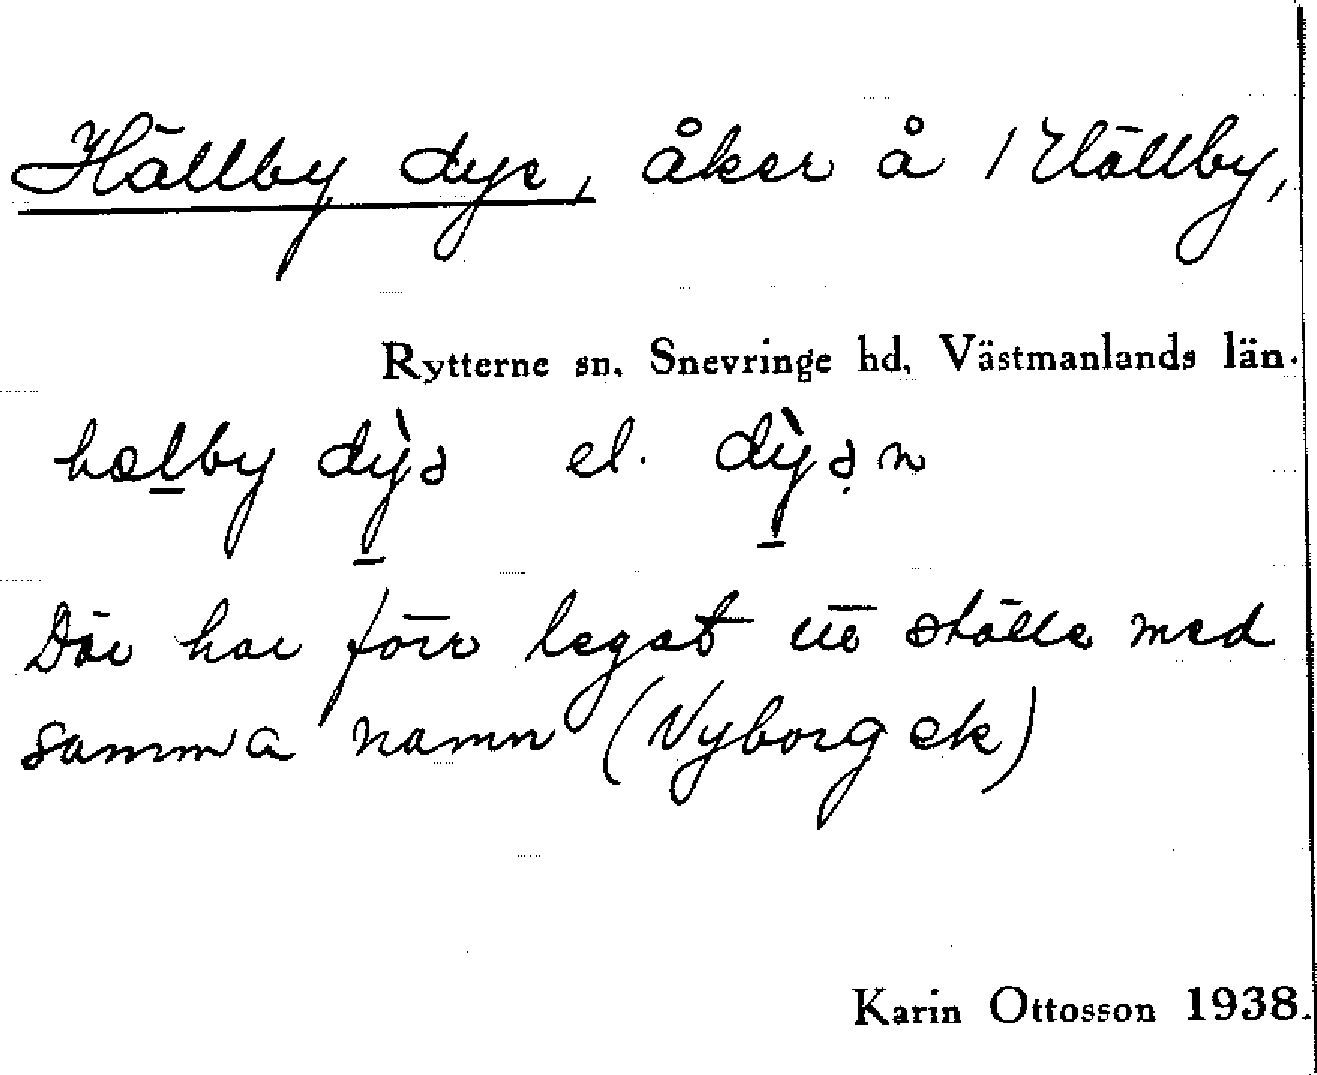 Hällby dye, åker å / Hällby,
Rytterne sn, Snevringe hd, Västmanlands län.
hælby dỳə el. dỳə̣n
Där har förr legat ett ställe med
samma namn (Nyborg ek)
Karin Ottosson 1938.